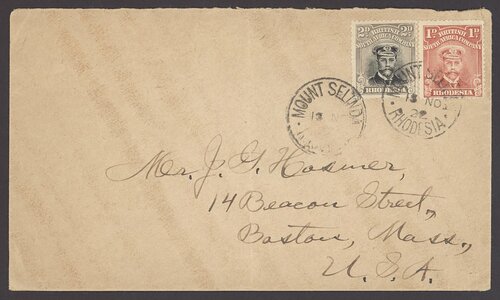 2D 2D
BRITISH
SOUTH AFRICA COMPANY
RHODESIA
1D 1D
BRITISH
SOUTH AFRICA COMPANY
RHODESIA
MOUNT SELINDA
13 NO
MOUNT SEL
13 NO
22
RHODESIA
Mr. J. G. Hosmer,
14 Beacon Street,
Boston, Mass.,
U. S. A.